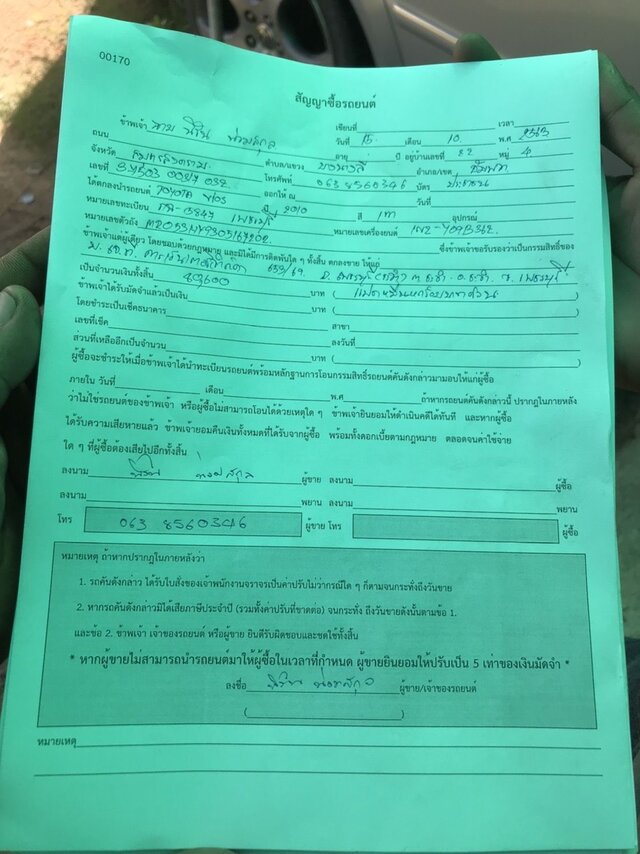 00170
สัญญาซื้อรถยนต์
เขียนที่ เวลา
ข้าพเจ้า นาย วันที่ 15 เดือน 10 พ.ศ 2563
ถนน อายุ ปี อยู่บ้านเลขที่ 82 หมู่ 4
จังหวัด ตำบล/แขวง อำเภอ/เขต
เลขที่ โทรศัพท์ 063 8560346 บัตร ประชาชน
ออกให้ ณ วันที่
ได้ตกลงนำรถยนต์ TOYOTA VIOS ปี 2010 สี เทา อุปกรณ์
หมายเลขทะเบียน เพชรบุรี หมายเลขเครื่องยนต์
หมายเลขตัวถัง ซึ่งข้าพเจ้าขอรับรองว่าเป็นกรรมสิทธิ์ของ
ข้าพเจ้าแต่ผู้เดียว โดยชอบด้วยกฎหมาย และมิได้มีการติดพันใด ๆ ทั้งสิ้น ตกลงขาย ให้แก่
659/69 จ. เพชรบุรี
เป็นจำนวนเงินทั้งสิ้น บาท ( )
ข้าพเจ้าได้รับมัดจำแล้วเป็นเงิน บาท ( )
โดยชำระเป็นเช็คธนาคาร สาขา
เลขที่เช็ค ลงวันที่
ส่วนที่เหลืออีกเป็นจำนวน บาท ( )
ผู้ซื้อจะชำระให้เมื่อข้าพเจ้าได้นำทะเบียนรถยนต์พร้อมหลักฐานการโอนกรรมสิทธิ์รถยนต์คันดังกล่าวมามอบให้แก่ผู้ซื้อ
ภายใน วันที่ เดือน พ.ศ ถ้าหากรถยนต์คันดังกล่าวนี้ ปรากฏในภายหลัง
ว่าไม่ใช่รถยนต์ของข้าพเจ้า หรือผู้ซื้อไม่สามารถโอนได้ด้วยเหตุใด ๆ ข้าพเจ้ายินยอมให้ดำเนินคดีได้ทันที และหากผู้ซื้อ
ได้รับความเสียหายแล้ว ข้าพเจ้ายอมคืนเงินทั้งหมดที่ได้รับจากผู้ซื้อ พร้อมทั้งดอกเบี้ยตามกฎหมาย ตลอดจนค่าใช้จ่าย
ใด ๆ ที่ผู้ซื้อต้องเสียไปอีกทั้งสิ้น
ลงนาม ผู้ขาย ลงนาม ผู้ซื้อ
ลงนาม พยาน ลงนาม พยาน
โทร 063 8560346 ผู้ขาย โทร ผู้ซื้อ
หมายเหตุ ถ้าหากปรากฏในภายหลังว่า
1. รถคันดังกล่าว ได้รับใบสั่งของเจ้าพนักงานจราจรเป็นค่าปรับไม่ว่ากรณีใด ๆ ก็ตามจนกระทั่งถึงวันขาย
2. หากรถคันดังกล่าวมิได้เสียภาษีประจำปี (รวมทั้งค่าปรับที่ขาดต่อ) จนกระทั่ง ถึงวันขายดังนั้นตามข้อ 1.
และข้อ 2. ข้าพเจ้า เจ้าของรถยนต์ หรือผู้ขาย ยินดีรับผิดชอบและชดใช้ทั้งสิ้น
* หากผู้ขายไม่สามารถนำรถยนต์มาให้ผู้ซื้อในเวลาที่กำหนด ผู้ขายยินยอมให้ปรับเป็น 5 เท่าของเงินมัดจำ *
ลงชื่อ ผู้ขาย/เจ้าของรถยนต์
( )
หมายเหตุ